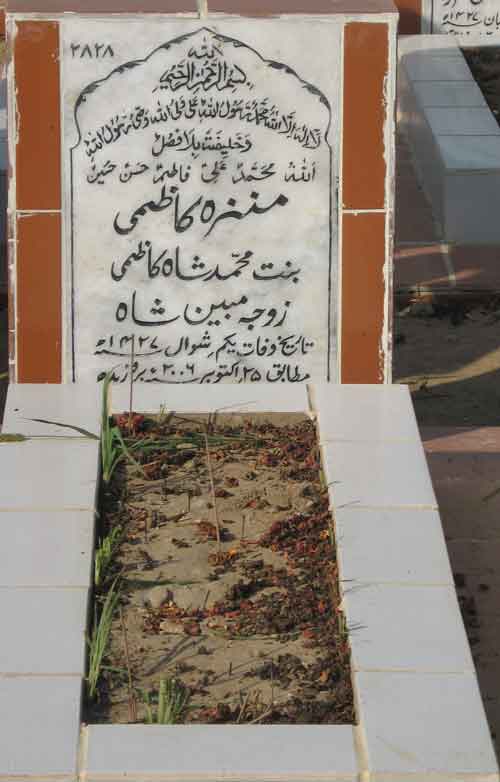 ۲۸۲۸
الله
بسم الله الرحمن الرحیم
لا اله الا الله محمد رسول الله علی ولی الله وصی رسول الله
وخلیفتہ بلا فصل
الله محمد علی فاطمہ حسن حسین
منزہ کاظمی
بنت محمد شاہ کاظمی
زوجہ مبین شاہ
تاریخ وفات یکم شوال ۱۴۲۷ھ
مطابق ۲۵ اکتوبر ۲۰۰۶ء بروز بدھ